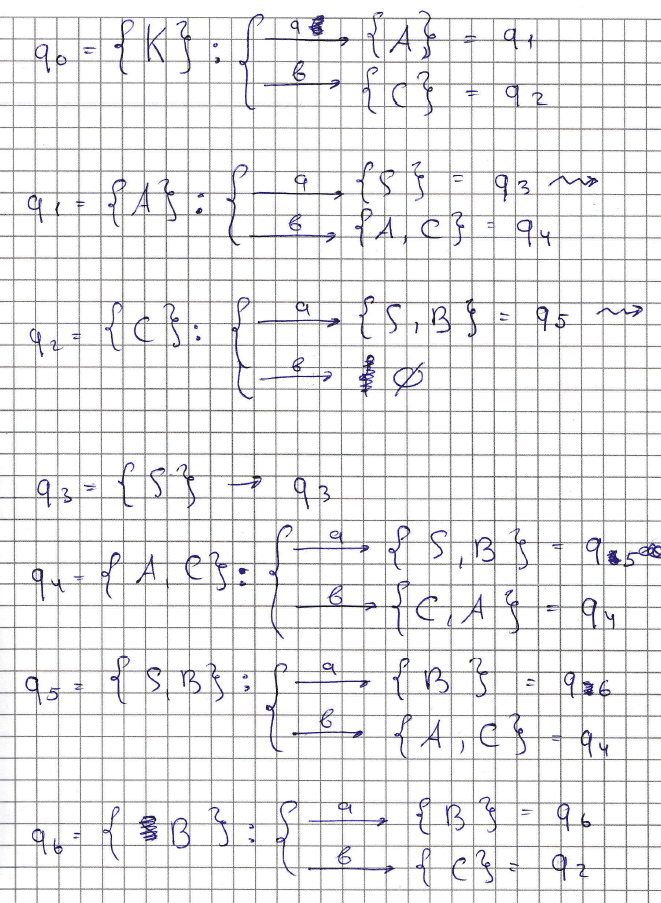 q₀ = {K} : { a→ {A} = q₁
b→ {C} = q₂
q₁ = {A} : { a→ {S} = q₃ ⇝
b→ {A, C} = q₄
q₂ = {C} : { a→ {S, B} = q₅ ⇝
b→ ∅
q₃ = {S} → q₃
q₄ = {A, C} : { a→ {S, B} = q₅
b→ {C, A} = q₄
q₅ = {S, B} : { a→ {B} = q₆
b→ {A, C} = q₄
q₆ = {B} : { a→ {B} = q₆
b→ {C} = q₂